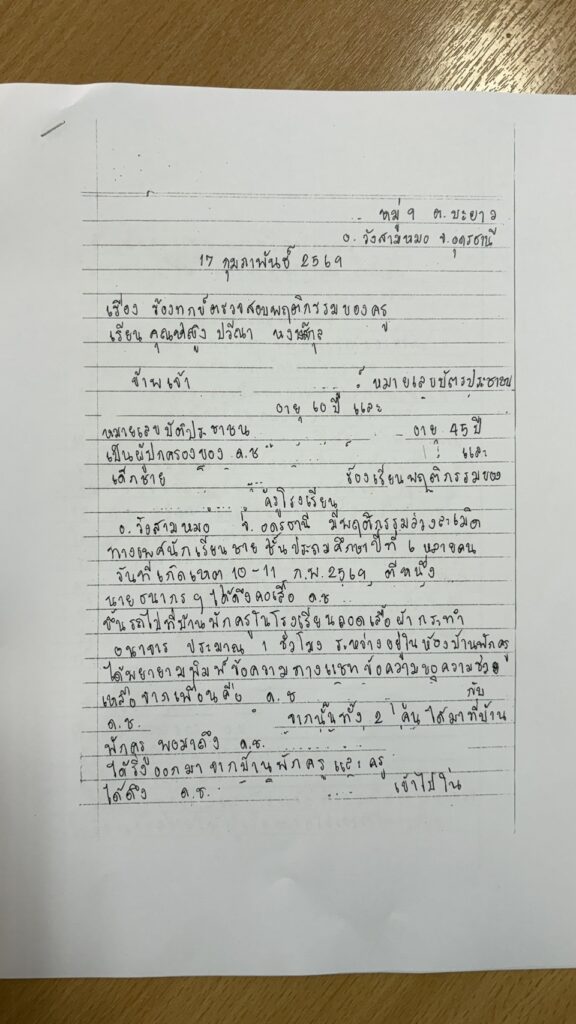 หมู่ 9 ต. บะยาว
อ. วังสามหมอ จ. อุดรธานี
17 กุมภาพันธ์ 2569
เรื่อง ร้องทุกข์ตรวจสอบพฤติกรรมของครู
เรียน คุณหญิง ปวีณา หงษ์สกุล
ข้าพเจ้า หมายเลขบัตรประชาชน
อายุ 60 ปี และ
หมายเลขบัตรประชาชน อายุ 45 ปี
เป็นผู้ปกครองของ ด.ช และ
เด็กชาย ร้องเรียนพฤติกรรมของ
ครูโรงเรียน
อ. วังสามหมอ จ. อุดรธานี มีพฤติกรรมล่วงละเมิด
ทางเพศนักเรียนชาย ชั้นประถมศึกษาปีที่ 6 หลายคน
วันที่เกิดเหตุ 10-11 ก.พ. 2569 ตีหนึ่ง
นาย ธนากร ๆ ได้ดึงคอเสื้อ ด.ช
ขึ้นรถไปที่บ้านพักครูในโรงเรียนถอดเสื้อผ้า กระทำ
อนาจาร ประมาณ 1 ชั่วโมง ระหว่างอยู่ในห้องบ้านพักครู
ได้พยายามพิมพ์ข้อความทางแชท ข้อความขอความช่วย
เหลือ จากเพื่อนคือ ด.ช กับ
ด.ช. จากนั้นทั้ง 2 คน ได้มาที่บ้าน
พักครู พอมาถึง ด.ช.
ได้วิ่งออกมาจากบ้านพักครู และ ครู
ได้ดึง ด.ช. เข้าไปใน